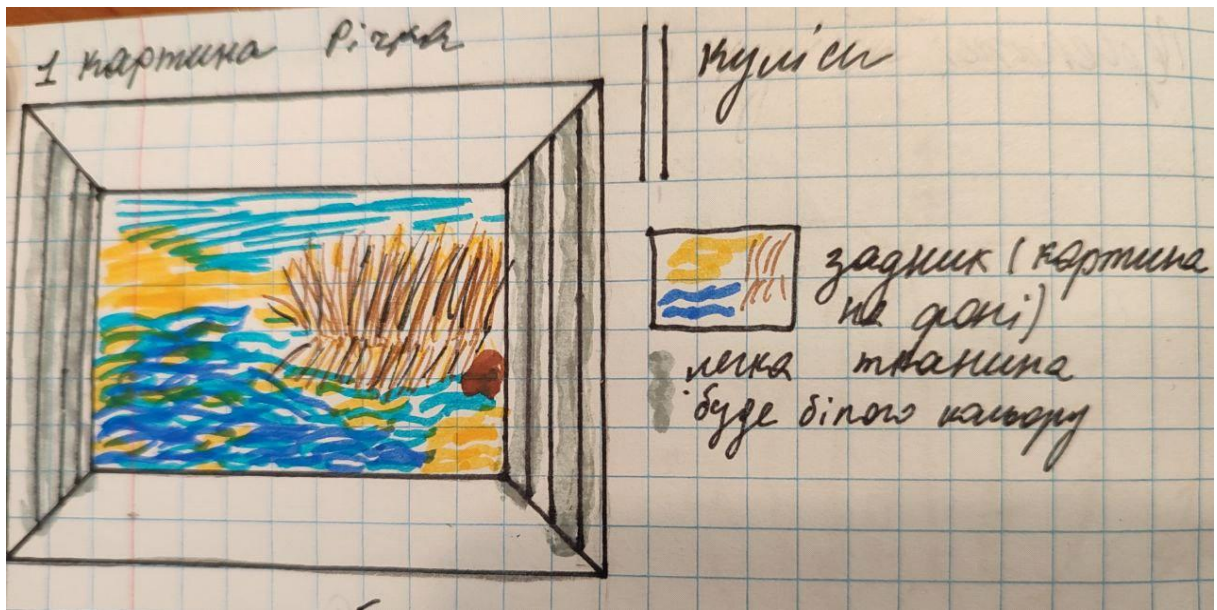 1 картина Річка
Куліси
задник (картина
на фоні)
легка тканина
буде білого кольору